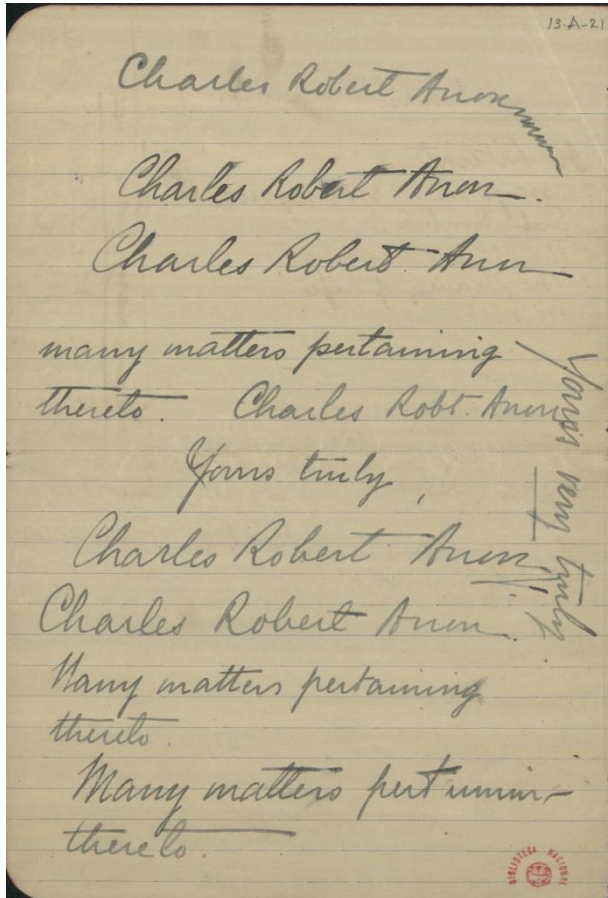 13-A-21
Charles Robert Anon
Charles Robert Anon.
Charles Robert Anon
many matters pertaining
thereto. Charles Robt. Anon
Yours truly,
Charles Robert Anon.
Charles Robert Anon.
Many matters pertaining
thereto.
Many matters
thereto.
Yours very truly
BIBLIOTECA NACIONAL